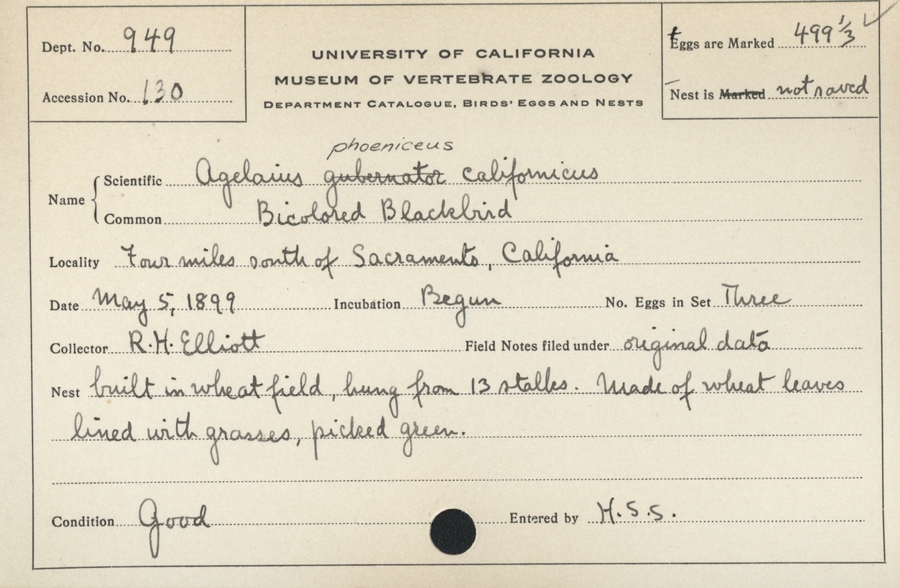 Dept. No. 949
Accession No. 130
UNIVERSITY OF CALIFORNIA
MUSEUM OF VERTEBRATE ZOOLOGY
DEPARTMENT CATALOGUE, BIRDS' EGGS AND NESTS
Eggs are Marked 499 1/3 ✓
Nest is Marked not saved
phoeniceus
Name { Scientific Agelaius gubernator californicus
Common Bicolored Blackbird
Locality Four miles south of Sacramento, California
Date May 5, 1899 Incubation Begun No. Eggs in Set Three
Collector R.H. Elliott Field Notes filed under original data
Nest built in wheat field, hung from 13 stalks. Made of wheat leaves
lined with grasses, picked green.
Condition Good Entered by H.S.S.